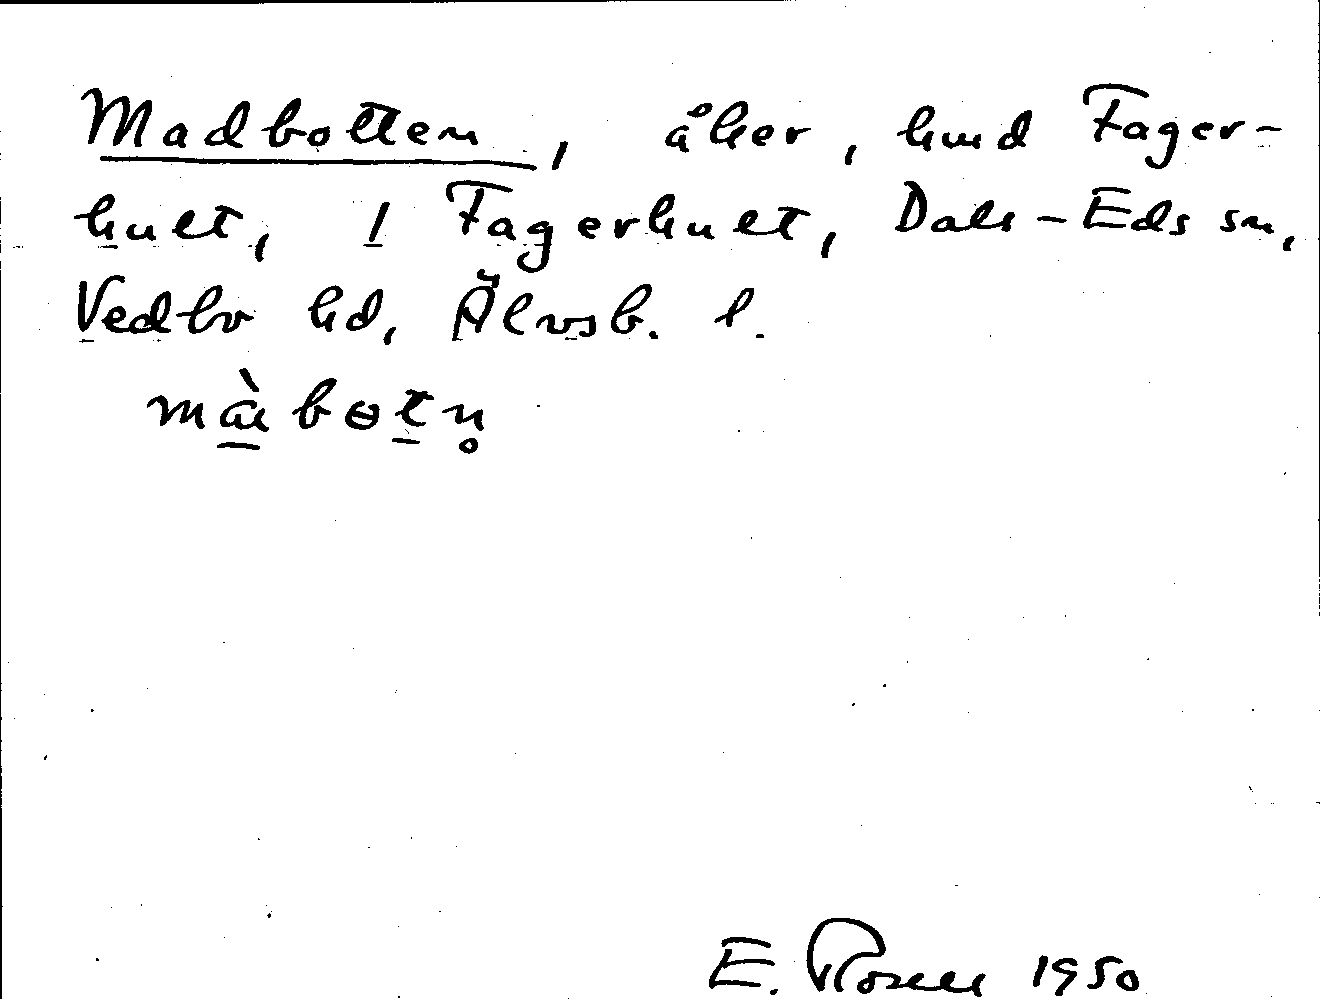 Madbotten, åker, hmd Fager-
hult, 1 Fagerhult, Dals-Eds sn,
Vedbo hd, Älvsb. l.
E. Rosell 1950